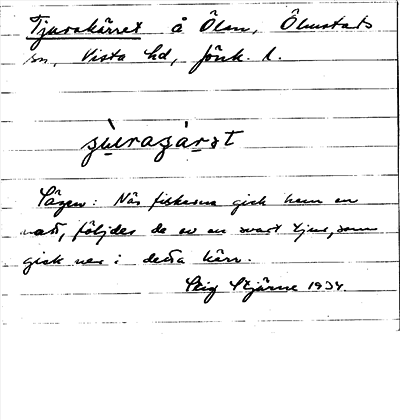 Tjurakärret å Ölan, Ölmstads
sn, Vista hd, Jönk. l.
Sägen: När fiskarna gick hem en
natt, följdes de av en svart tjur, som
gick ner i detta kärr.
Stig Stjärne 1934.